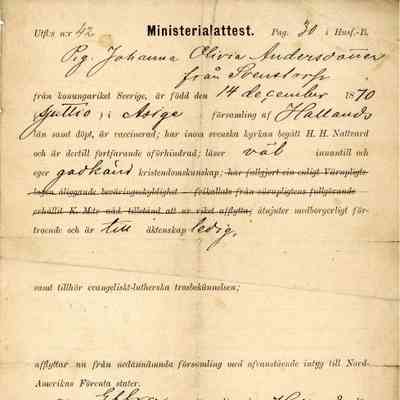 Utfl:s n:r 42 Ministerialattest. Pag. 30 i Husf.-B.
Pig. Johanna Olivia Andersdotter
från Svenstorp
från konungariket Sverige, är född den 14 december 1870
(sjuttio) i Asige församling af Hallands
län samt döpt, är vaccinerad; har inom svenska kyrkan begått H. H. Nattvard
och är dertill fortfarande oförhindrad; läser väl innantill och
eger godkänd kristendomskunskap; har fullgjort sin enligt Värnplygts-
lagen åliggande beväringsskyldighet — frikallats från värnpligtens fullgörande
erhållit K. M:ts nåd. tillstånd att ur riket afflytta; åtnjuter medborgerligt för-
troende och är till äktenskap ledig,
samt tillhör evangeliskt-lutherska trosbekännelsen;
afflyttar nu från nedannämnda församling med ofvanstående intyg till Nord-
Amerikas Förenta stater.